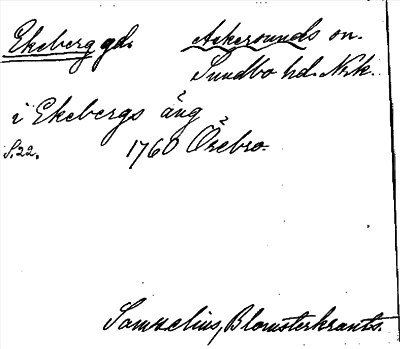 Ekeberg gd. Askersunds on.
Sundbo hd. Nrk.
i Ekebergs äng
S. 22. 1760 Örebro.
Samzelius, Blomsterkrants.